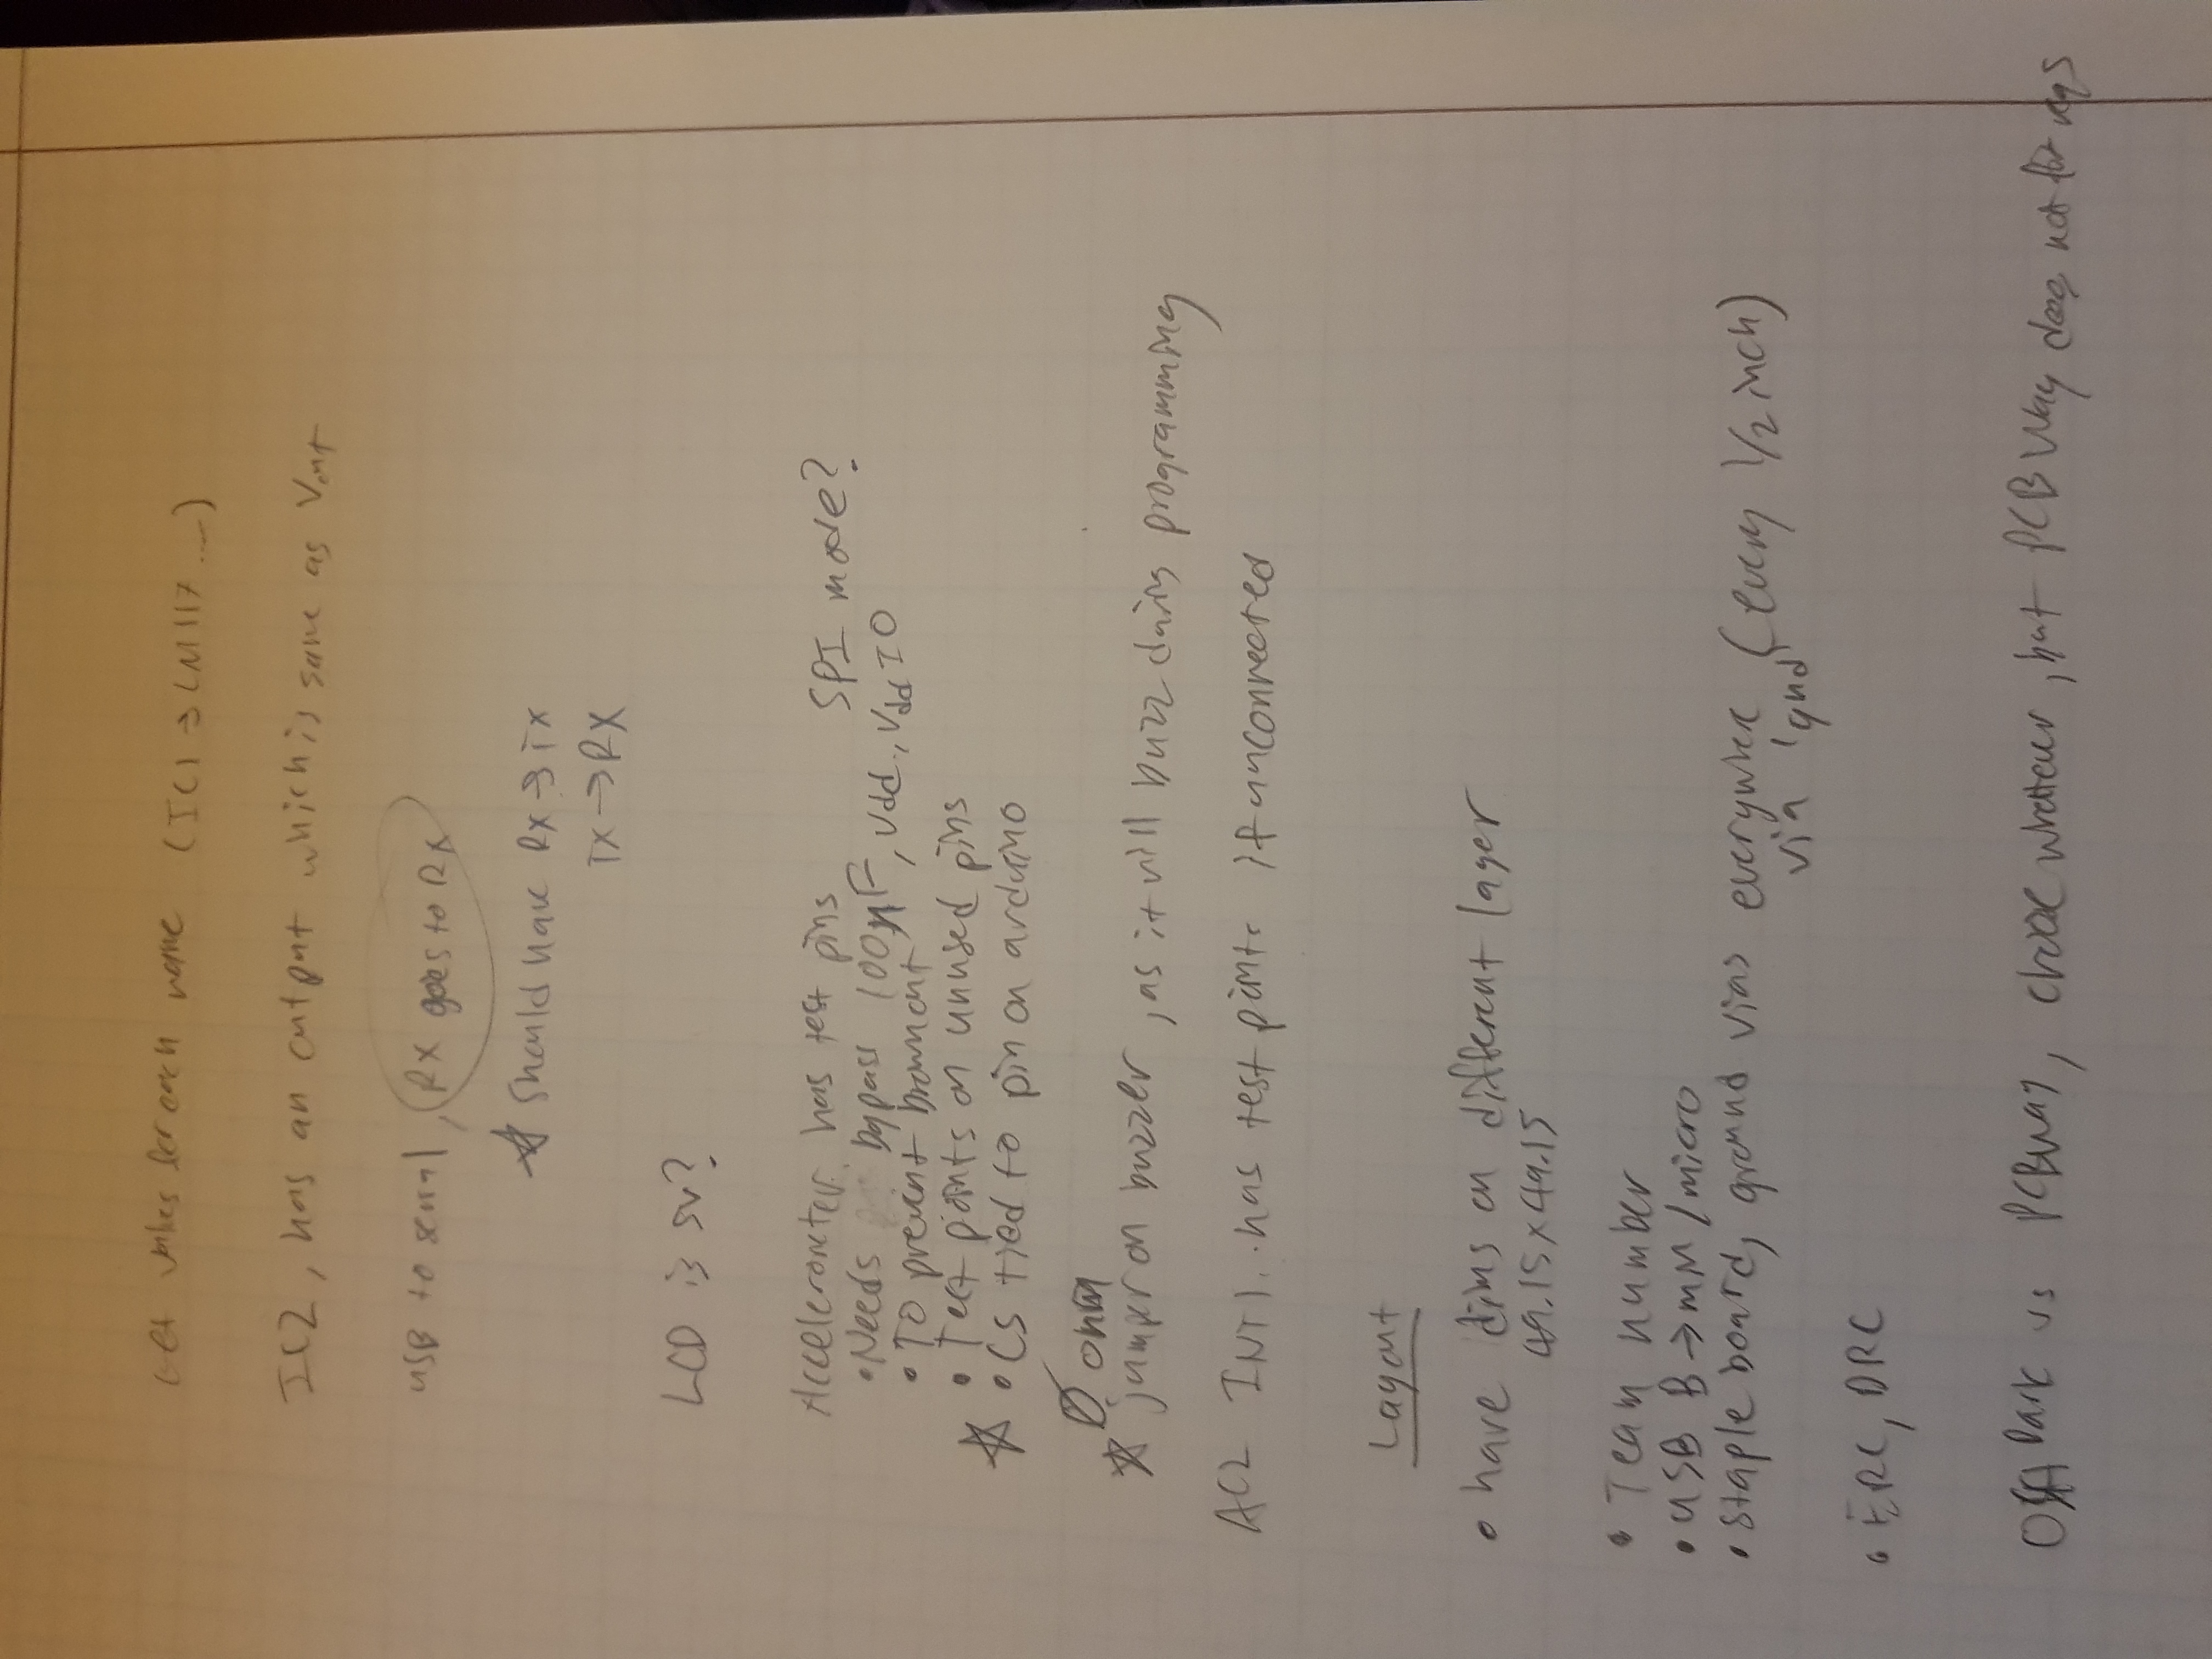 Get values for each name (IC1 → LM117 ...)
IC2, has an output which is same as Vout
USB to serial, RX goes to RX
☆ Should have RX → TX
TX → RX
LCD is 5v?
Accelerometer has test pins SPI mode?
• Needs bypass 100nF, Vdd, VddIO
• To prevent brownout
• Test points on unused pins
☆ • CS tied to pin on arduino
0 ohm
☆ jumper on buzzer, as it will buzz during programming
AC2 INT1 has test points if unconnected
Layout
• have dims on different layer
49.15 x 49.15
• Team number
• USB B → /micro
• Staple board, ground vias everywhere (every 1/2 inch)
via 'gnd'
• ERC, DRC
Park vs PCBway, choose whatever, but PCB Way does not for